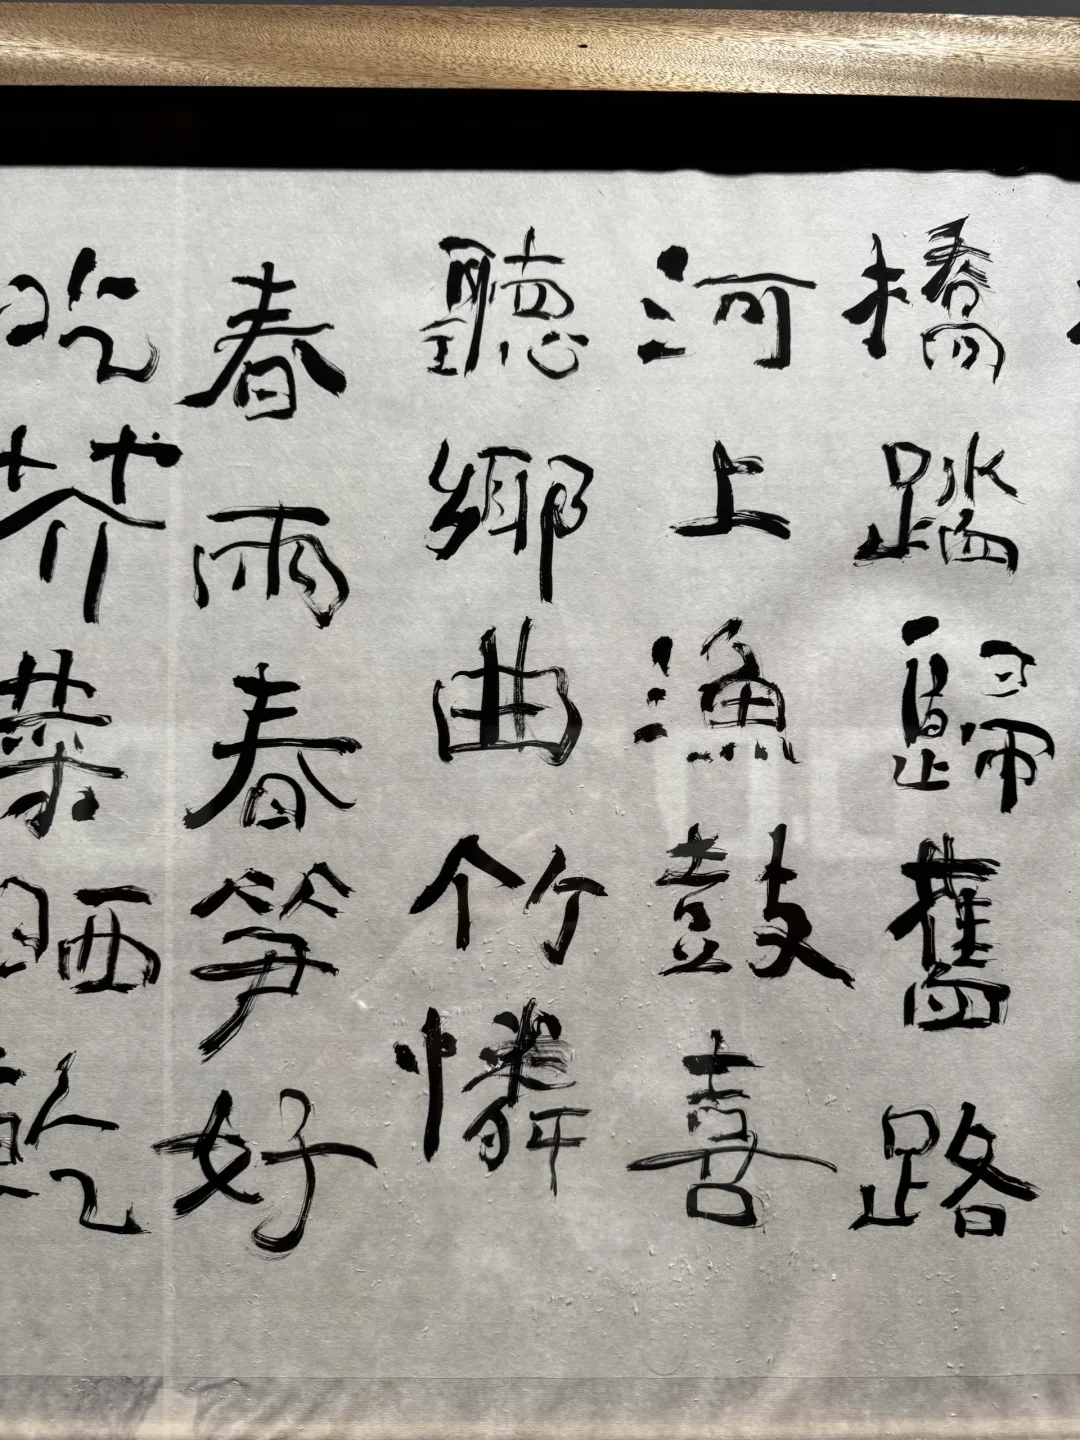 橋踏歸舊路
河上漁鼓喜
聽鄉曲竹憐
春雨春笋好
吃芥菜晒乾